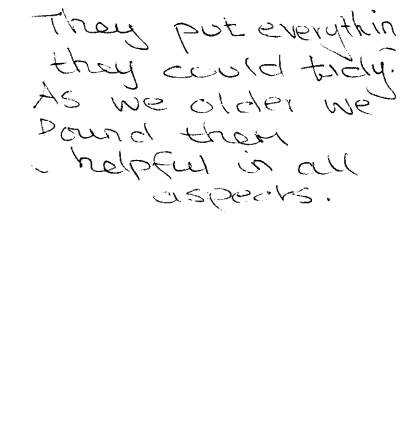 They put everythin
they could tidy.
As we older we
Pound them
helpful in all
aspects.